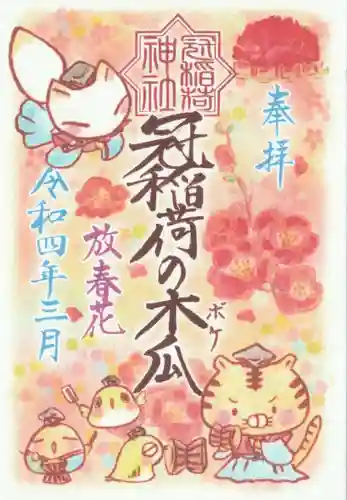 奉拝
冠稲荷神社
冠稲荷の木瓜
ボケ
放春花
令和四年三月